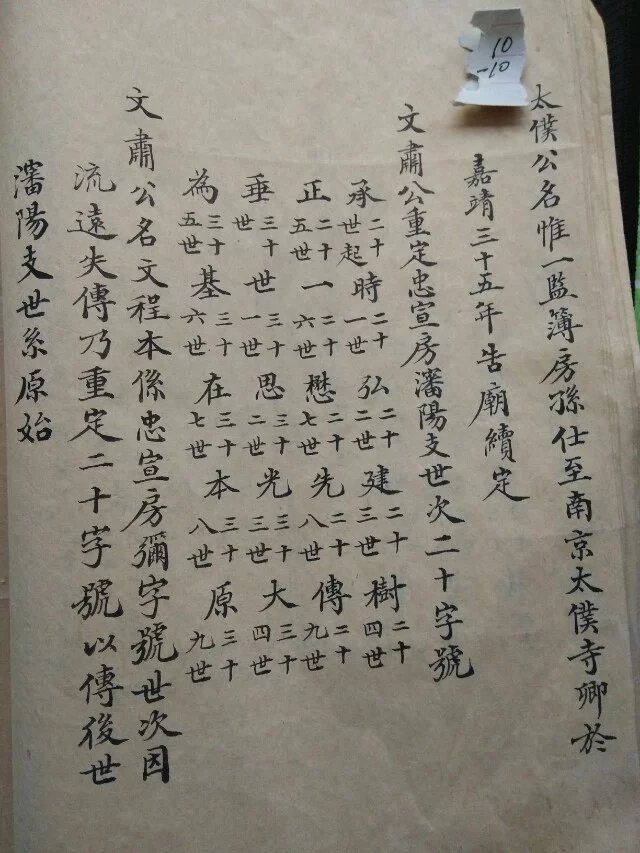 10
-10
太僕公名惟一監簿房孫仕至南京太僕寺卿於
嘉靖三十五年告廟續定
文肅公重定忠宣房瀋陽支世次二十字號
承二十世起時二十一世弘二十二世建二十三世樹二十四世
正二十五世一二十六世懋二十七世先二十八世傳二十九世
垂三十世世三十一世思三十二世光三十三世大三十四世
為三十五世基三十六世在三十七世本三十八世原三十九世
文肅公名文程本係忠宣房彌字號世次因
流遠失傳乃重定二十字號以傳後世
瀋陽支世系原始